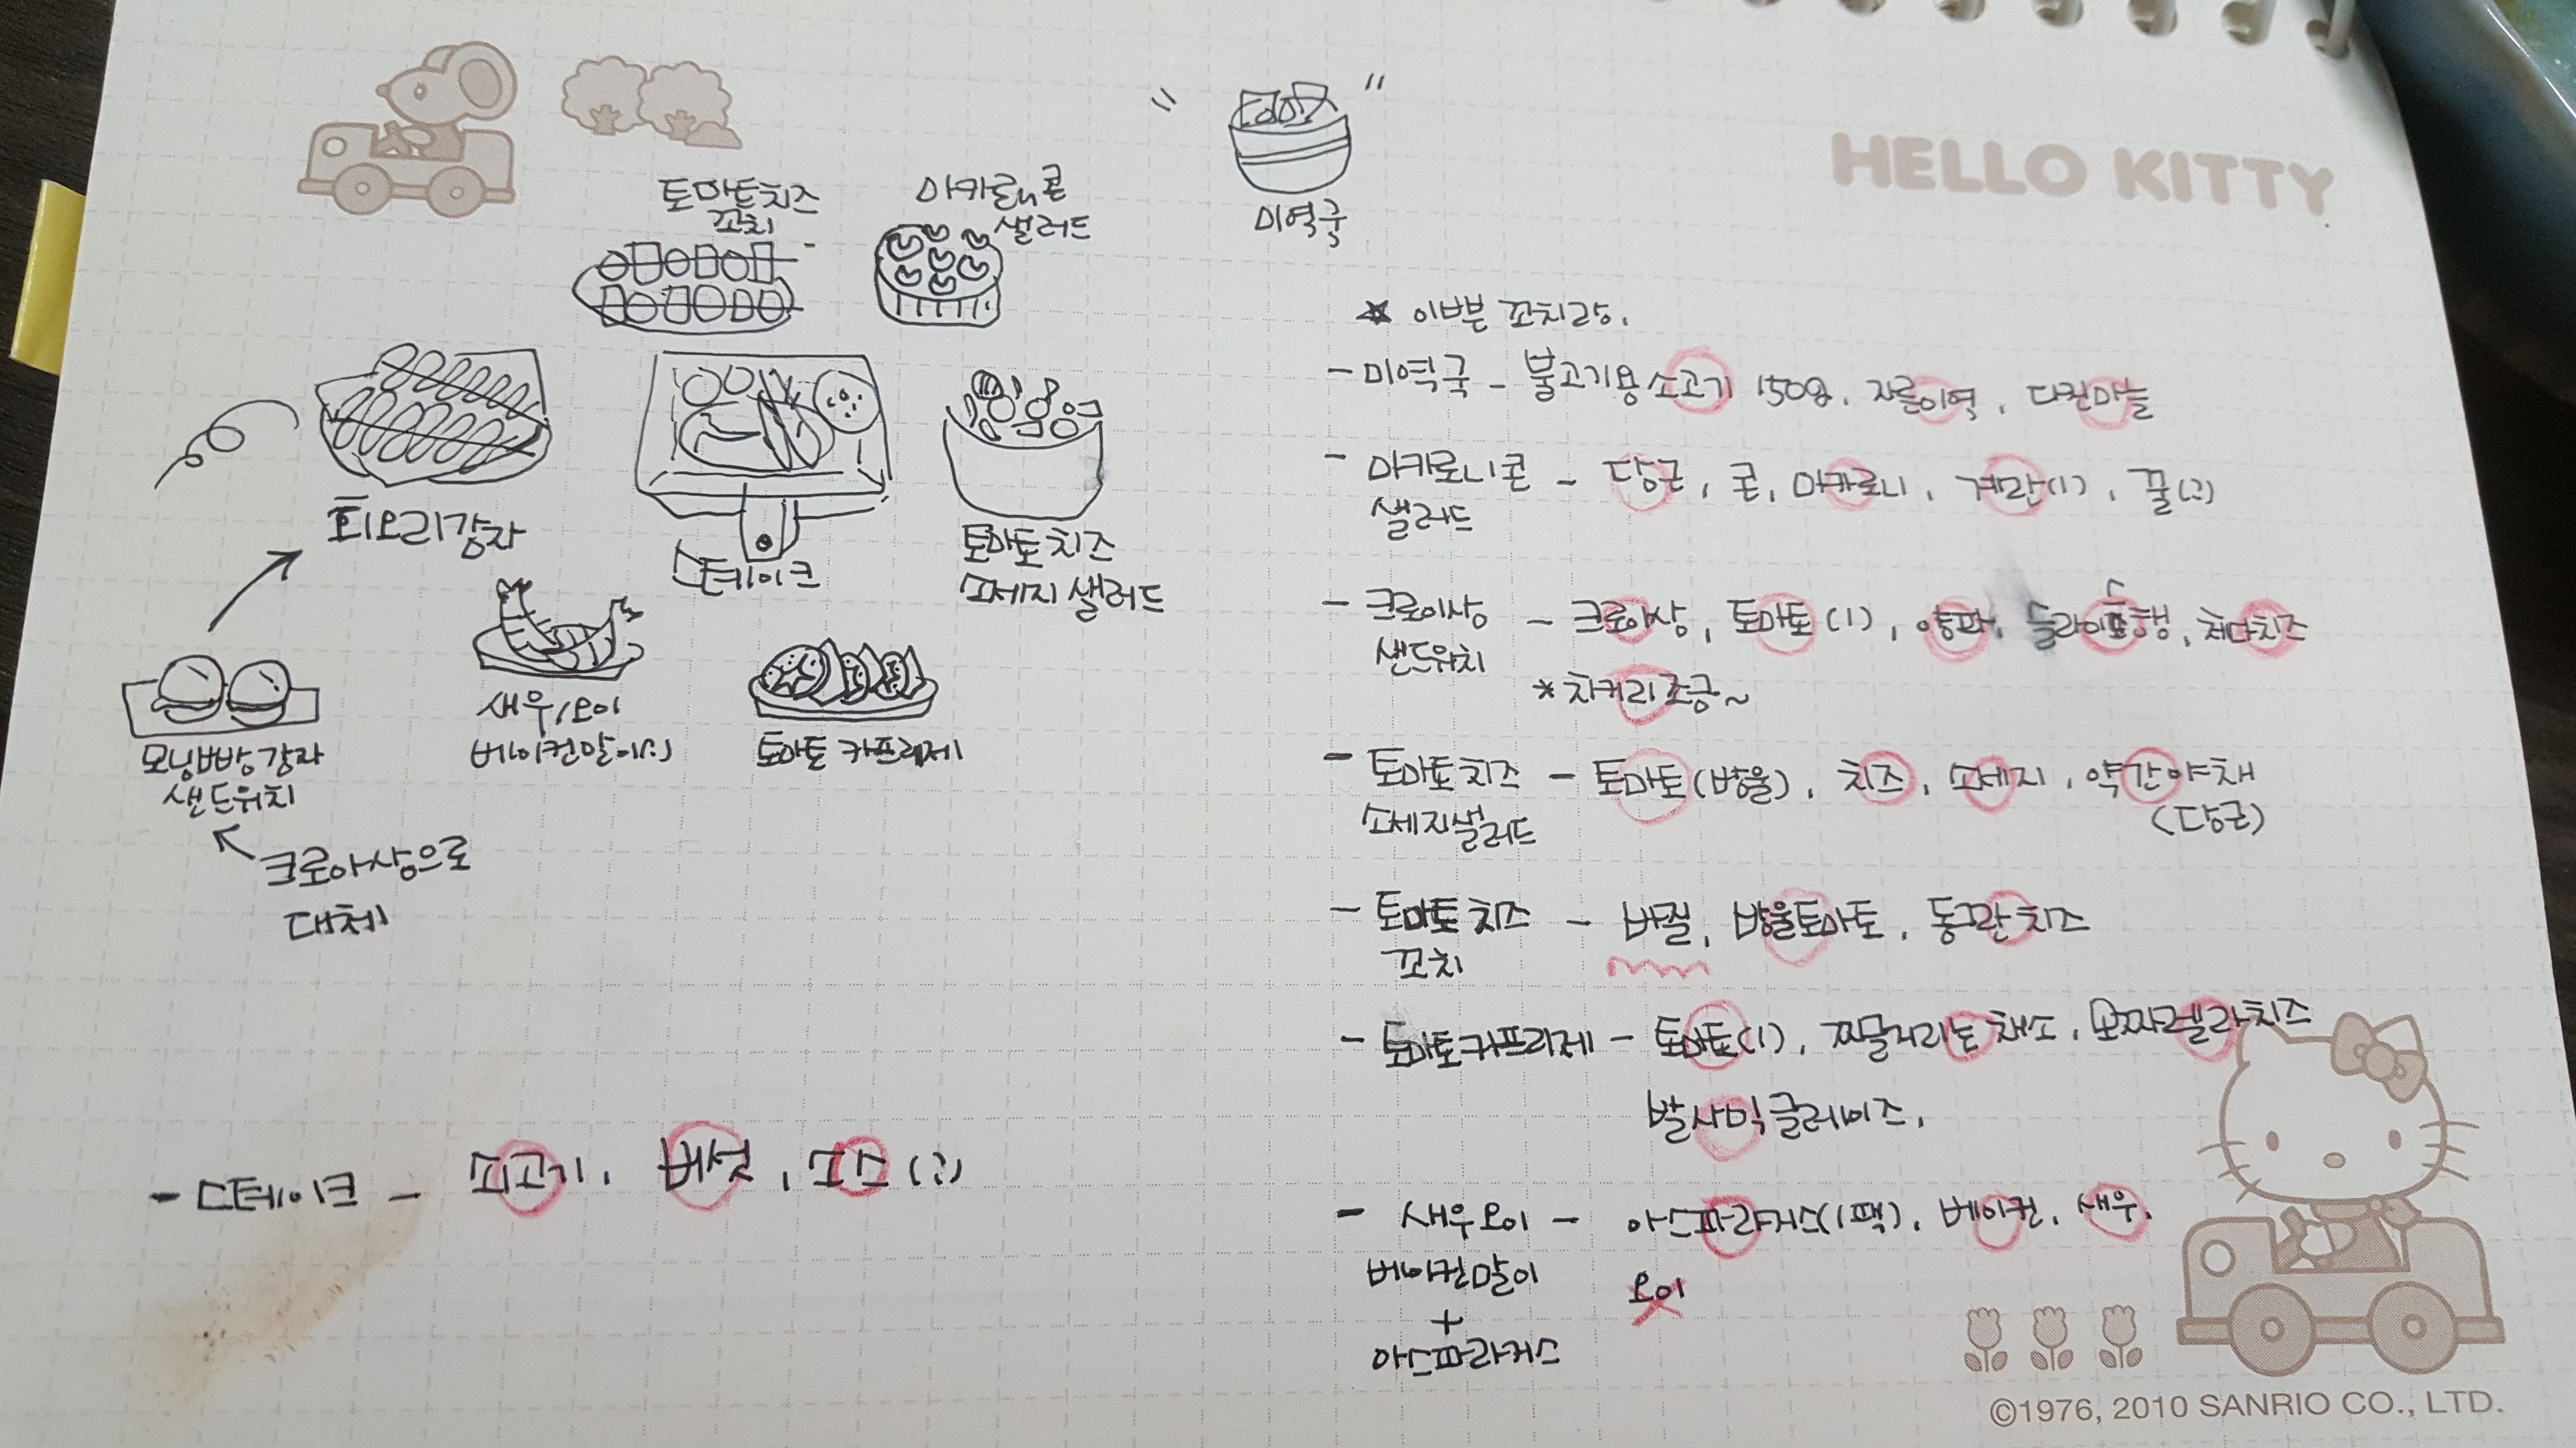 HELLO KITTY
토마토치즈
꼬치
마카로니콘
샐러드
미역국
회오리감자
스테이크
토마토치즈
소세지 샐러드
모닝빵감자
샌드위치
새우/오이
베이컨말이(?)
토마토 카프레제
크로아상으로
대체
★ 이쁜 꼬치랑.
- 미역국 - 불고기용 소고기 150g, 자른미역, 다진마늘
- 마카로니콘 - 당근, 콘, 마카로니, 계란(1), 꿀(?)
샐러드
- 크로아상 - 크로아상, 토마토(1), 양파, 슬라이스햄, 체다치즈
샌드위치
*치커리조금~
- 토마토치즈 - 토마토(방울), 치즈, 소세지, 약간야채
소세지샐러드
(당근)
- 토마토치즈 - 바질, 방울토마토, 동그란치즈
꼬치
- 토마토카프레제 - 토마토(1), 찌끌거리는 채소, 모짜렐라치즈
발사믹글레이즈,
- 스테이크 - 쇠고기, 버섯, 소스(?)
- 새우오이 - 아스파라거스(1팩), 베이컨, 새우,
베이컨말이
오이
+
아스파라거스
©1976, 2010 SANRIO CO., LTD.